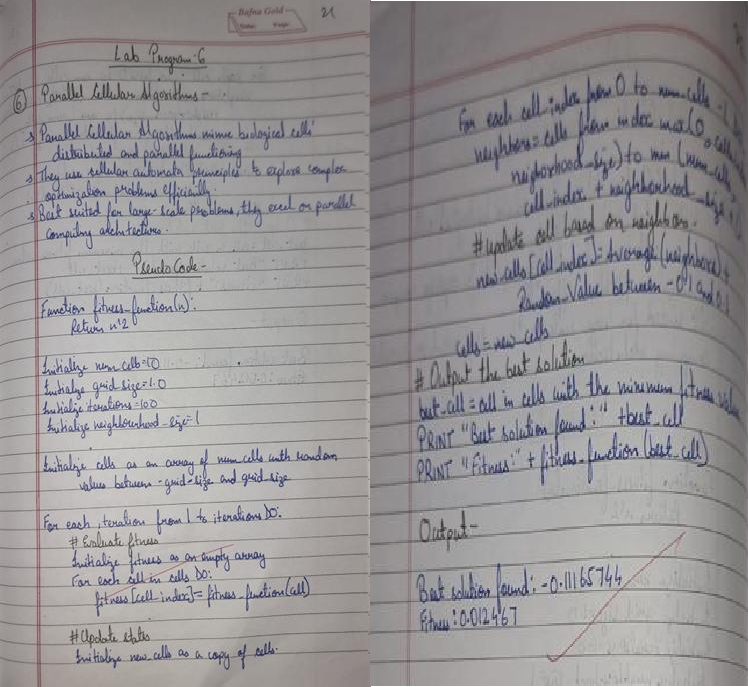 Bafna Gold
Date: Page:
21
Lab Program-6
⑥ Parallel Cellular Algorithms-
→ Parallel Cellular Algorithms mimic biological cells'
distributed and parallel functioning
→ They use cellular automata principles to explore complex
optimization problems efficiently.
→ Best suited for large-scale problems, they excel on parallel
computing architectures.
Pseudo Code-
Function fitness_function(n):
Return n^2
Initialize num_cells=10
Initialize grid_size=1.0
Initialize iterations=100
Initialize neighbourhood_size=1
Initialize cells as an array of num_cells with random
values between -grid_size and grid_size
For each iteration from 1 to iterations DO:
# Evaluate fitness
Initialize fitness as an empty array
For each cell in cells DO:
fitness[cell_index]= fitness_function(cell)
# Update states
Initialize new_cells as a copy of cells.
For each cell_index from 0 to num_cells -1
neighbors= cells from index max(0,
neighorhood_size) to min (num_cells,
cell_index + neighborhood_size +
# update cell based on neighbors.
new_cells[cell_index]= Average(neighbors) +
Random_Value between -0.1 and 0.1
cells = new_cells
# Output the best solution
best_cell = cell in cells with the minimum fitness value
PRINT "Best solution found:" +best_cell
PRINT "Fitness:" + fitness_function(best_cell)
Output-
Best solution found: -0.11165744
Fitness: 0.012467